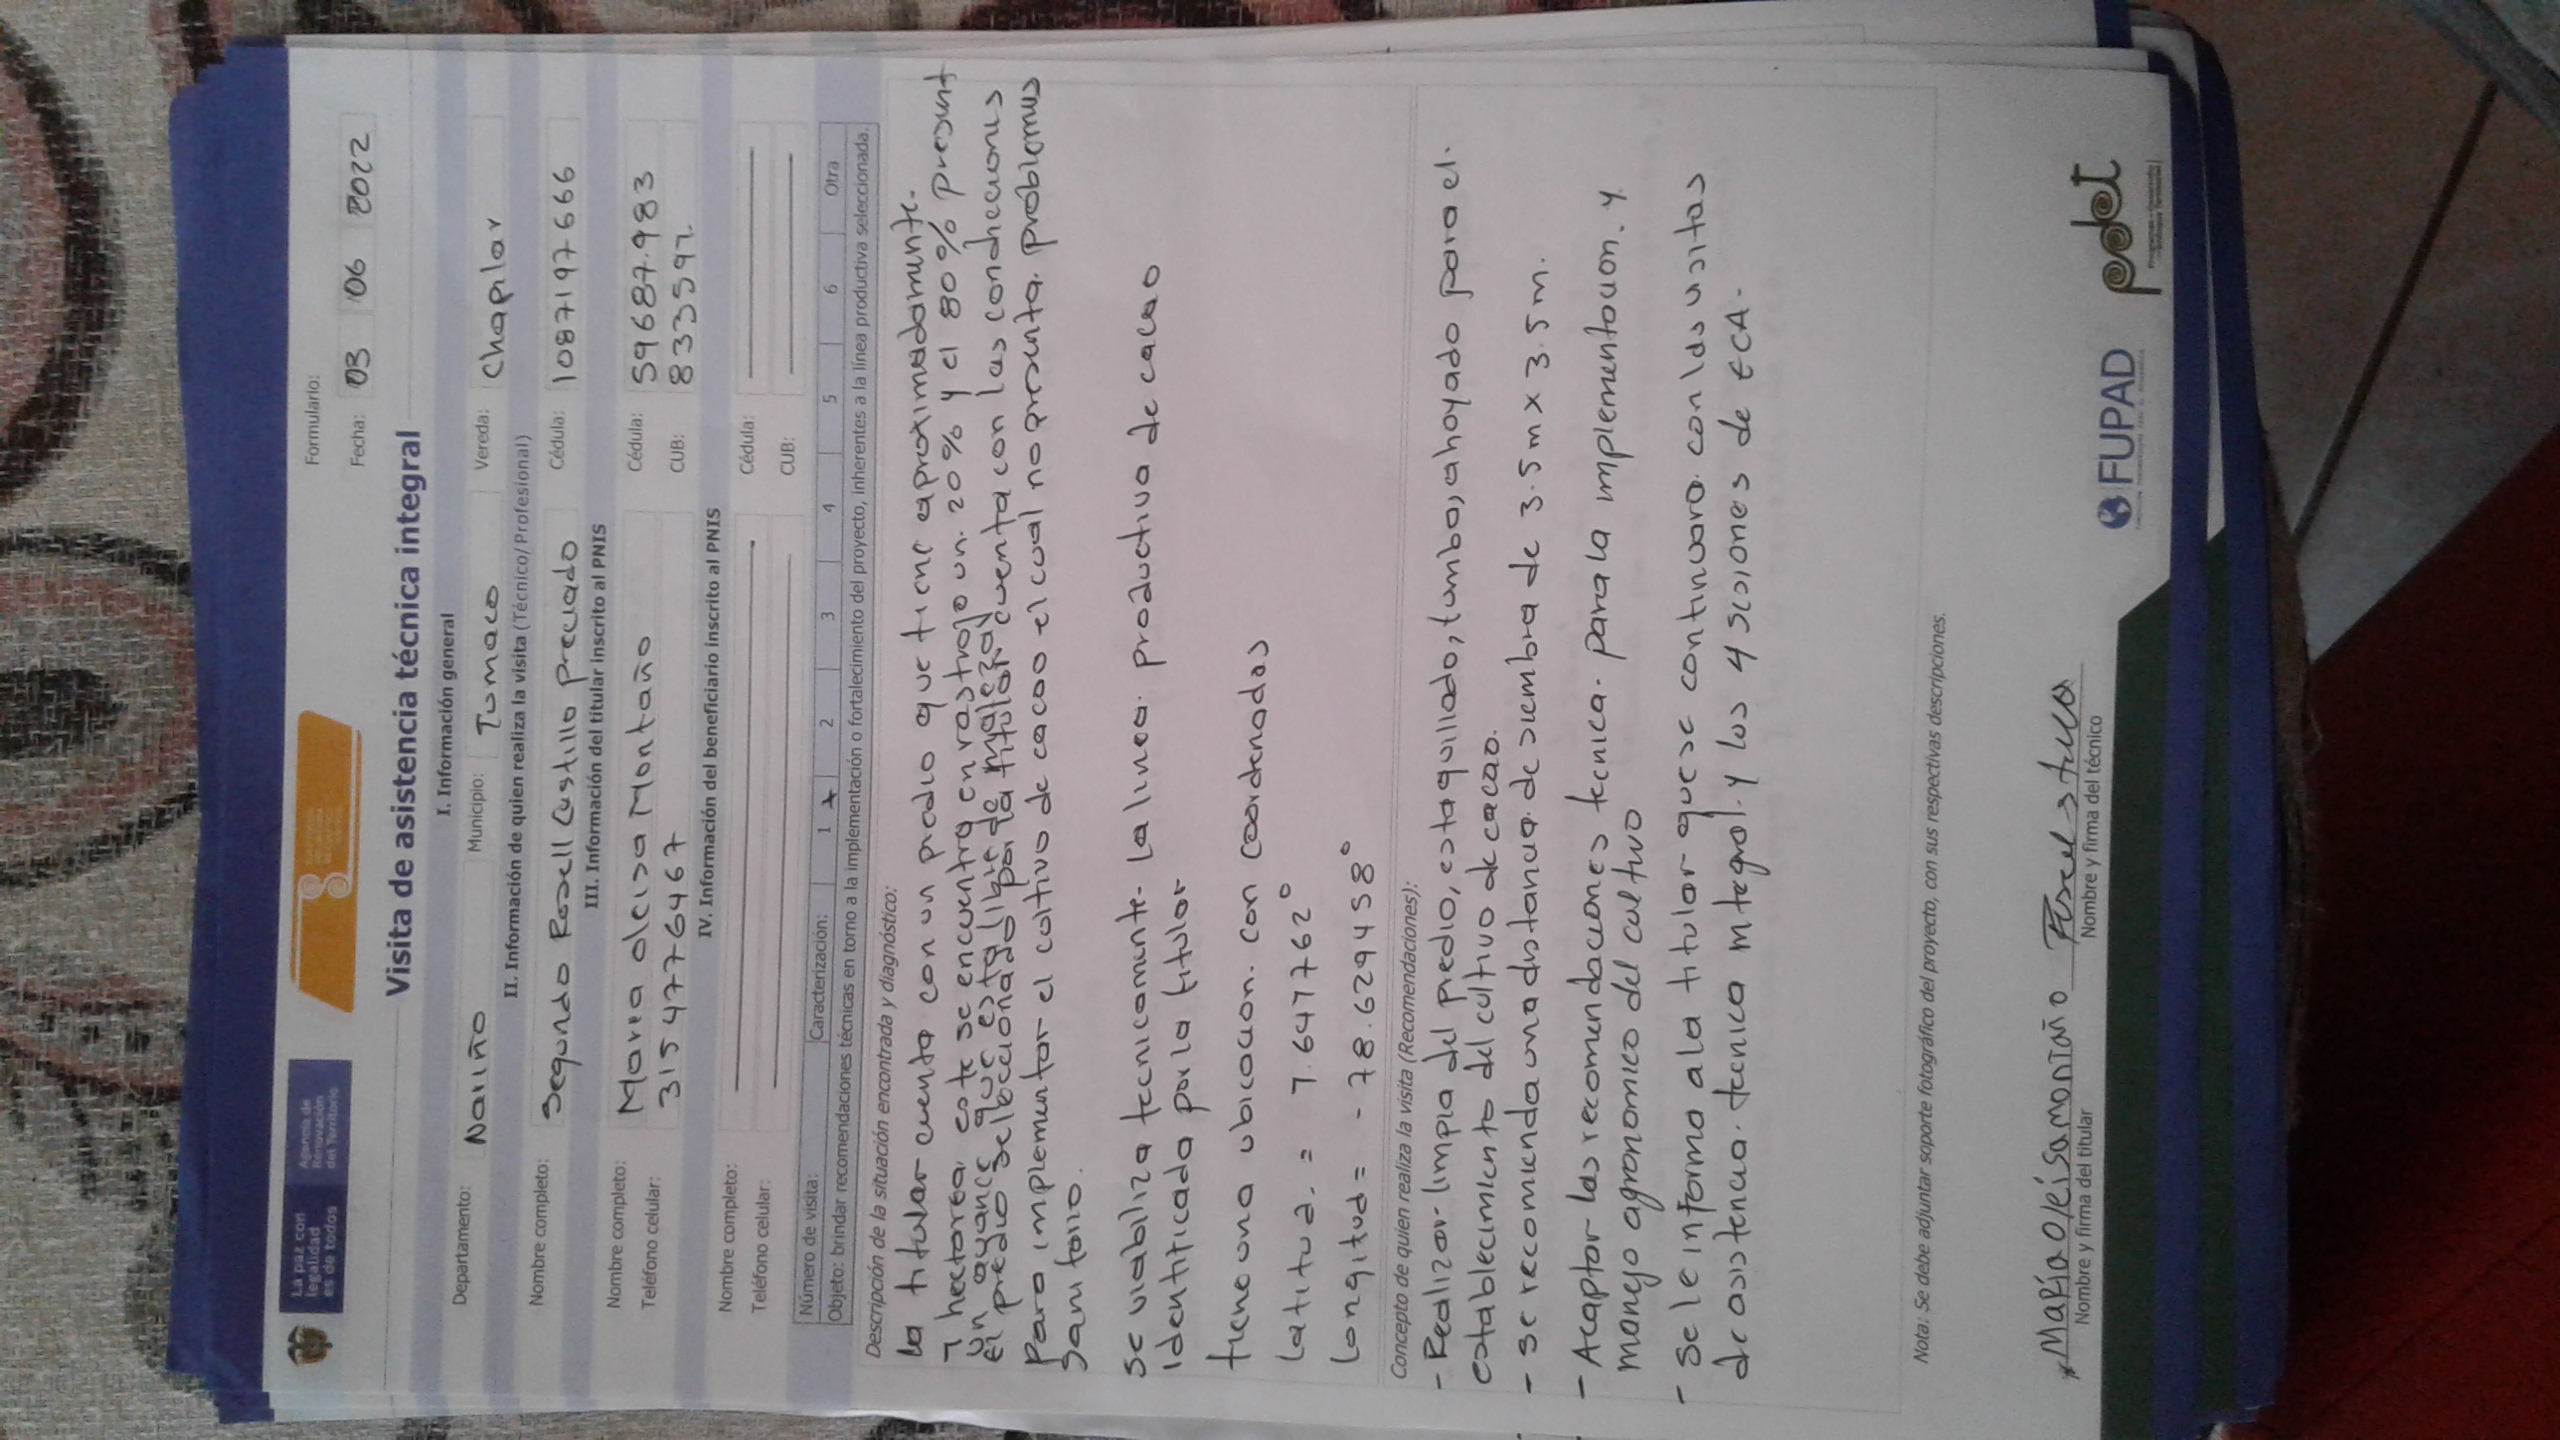 La paz con
legalidad
es de todos
Agencia de
Renovación
del Territorio
Formulario:
Fecha: 03 06 2022
Visita de asistencia técnica integral
I. Información general
Departamento: Nariño Municipio: Tumaco Vereda: Chapilar
II. Información de quien realiza la visita (Técnico/Profesional)
Nombre completo: Segundo Rosell Castillo Preciado Cédula: 1087197666
III. Información del titular inscrito al PNIS
Nombre completo: Maria oleisa Montaño Cédula: 59687.983
Teléfono celular: 3154776467 CUB: 833597.
IV. Información del beneficiario inscrito al PNIS
Nombre completo: Cédula:
Teléfono celular: CUB:
Número de visita: Caracterización: 1 x 2 3 4 5 6 Otra
Objeto: brindar recomendaciones técnicas en torno a la implementación o fortalecimiento del proyecto, inherentes a la línea productiva seleccionada.
Descripción de la situación encontrada y diagnóstico:
la titular cuenta con un predio que tiene aproximadamente.
7 hectarea, este se encuentra en rastrojo un. 20% y el 80% present
un avance que esta libre de maleza
el predio seleccionado por la titular cuenta con las condiciones
para implementar el cultivo de cacao el cual no presenta. problemas
sanitario.
se viabiliza tecnicamente. la linea. productiva de cacao
identificada por la titular
tiene una ubicacion. con coordenadas
Latitud. = 1.647762°
Longitud = - 78.629458°
Concepto de quien realiza la visita (Recomendaciones):
- Realizar limpia del predio, estaquillado, tumba, ahoyado para el.
establecimiento del cultivo de cacao.
- se recomienda una distancia. de siembra de 3.5 m x 3.5 m.
- Acaptar las recomendaciones tecnica. para la implementacion. y
manejo agronomico del cultivo
- se le informa a la titular que se continuara. con las visitas
de asistencia. tecnica integral. y las 4 sesiones de ECA.
Nota: Se debe adjuntar soporte fotográfico del proyecto, con sus respectivas descripciones.
María Oleisa montaño
Nombre y firma del titular
Nombre y firma del técnico
FUPAD
pdet